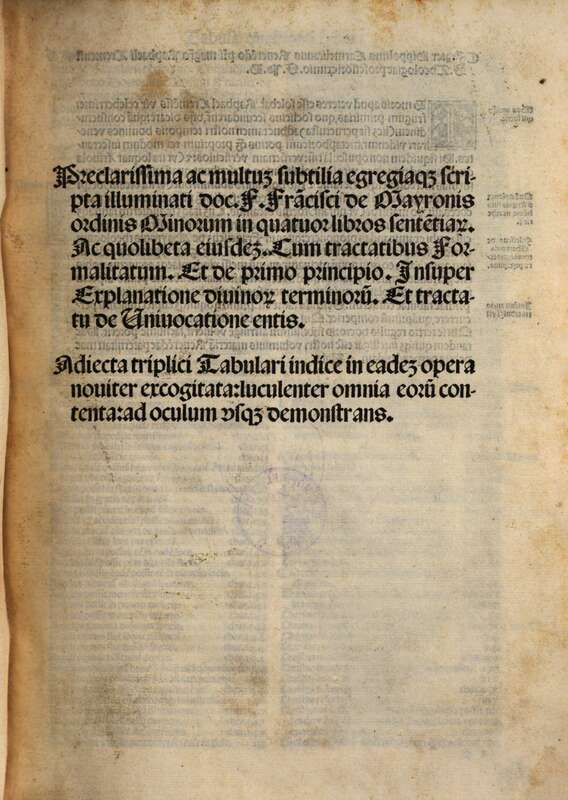 Preclarissima ac multuꝫ subtilia egregiaqꝫ scri-
pta illuminati doc. F. Frãcisci de Mayronis
ordinis Minorum in quatuor libros sentẽtiaꝝ.
Ac quolibeta eiusdeꝫ. Cum tractatibus For-
malitatum. Et de primo principio. Insuper
Explanatione diuinoꝝ terminorũ. Et tracta-
tu de Uniuocatione entis.
Adiecta triplici Tabulari indice in eadeꝫ opera
nouiter excogitata: luculenter omnia eorũ con-
tenta: ad oculum vsqꝫ demonstrans.